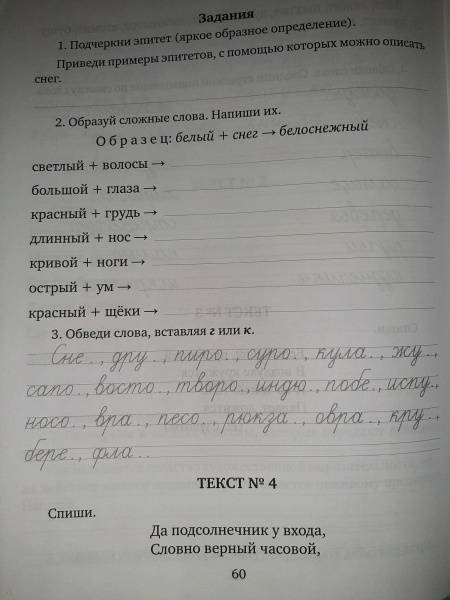 Задания
1. Подчеркни эпитет (яркое образное определение).
Приведи примеры эпитетов, с помощью которых можно описать
снег.
2. Образуй сложные слова. Напиши их.
Образец: белый + снег → белоснежный
светлый + волосы →
большой + глаза →
красный + грудь →
длинный + нос →
кривой + ноги →
острый + ум →
красный + щёки →
3. Обведи слова, вставляя г или к.
Сне.., дру.., пиро.., суро.., кула.., жу..,
сапо.., восто.., творо.., индю.., побе.., испу..,
носо.., вра.., песо.., рюкза.., овра.., кру..,
бере.., фла..
ТЕКСТ № 4
Спиши.
Да подсолнечник у входа,
Словно верный часовой,
60